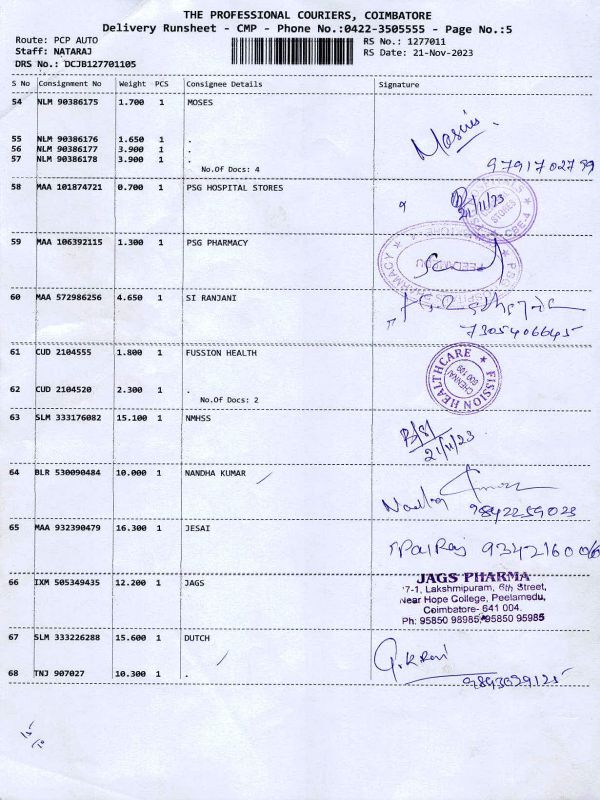 THE PROFESSIONAL COURIERS, COIMBATORE
Delivery Runsheet - CMP - Phone No.:0422-3505555 - Page No.:5
Route: PCP AUTO
RS No.: 1277011
Staff: NATARAJ
RS Date: 21-Nov-2023
DRS No.: DCJB127701105
S No Consignment No Weight PCS Consignee Details Signature
54 NLM 90386175 1.700 1 MOSES
55 NLM 90386176 1.650 1 .
56 NLM 90386177 3.900 1 .
57 NLM 90386178 3.900 1 .
No.Of Docs: 4
58 MAA 101874721 0.700 1 PSG HOSPITAL STORES
21/11/23
STORES
CBE-4
59 MAA 106392115 1.300 1 PSG PHARMACY
PSG PHARMACY
60 MAA 572986256 4.650 1 SI RANJANI
7305406645
61 CUD 2104555 1.800 1 FUSSION HEALTH
FISSION HEALTHCARE
CHENNAI
600 109
62 CUD 2104520 2.300 1 .
No.Of Docs: 2
63 SLM 333176082 15.100 1 NMHSS
21/11/23
64 BLR 530090484 10.000 1 NANDHA KUMAR
9842259023
65 MAA 932390479 16.300 1 JESAI
66 IXM 505349435 12.200 1 JAGS
JAGS PHARMA
7-1, Lakshmipuram, 6th Street,
Near Hope College, Peelamedu,
Coimbatore- 641 004.
Ph: 95850 98985, 95850 95985
67 SLM 333226288 15.600 1 DUTCH
68 TNJ 907027 10.300 1 .